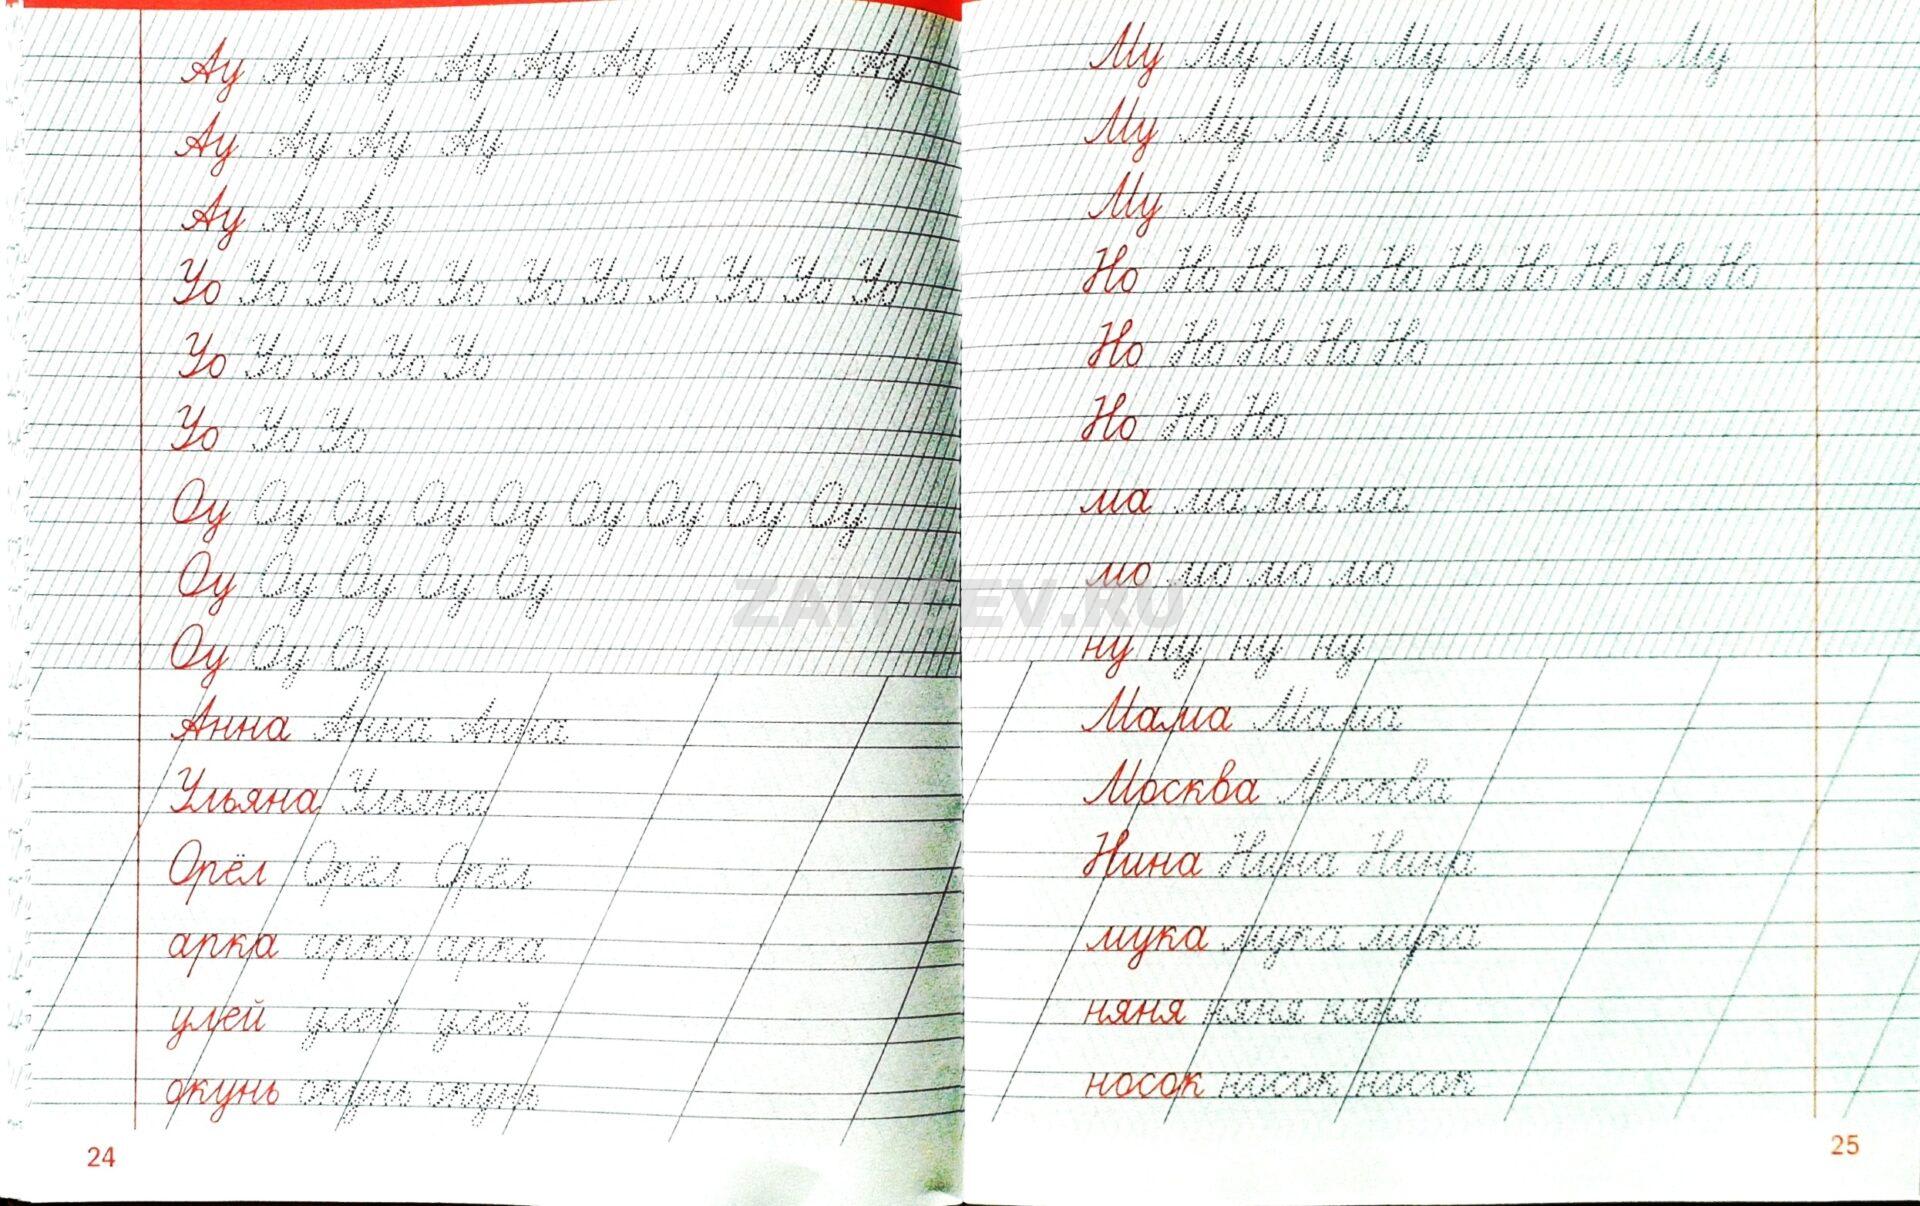 Ау Ау Ау Ау Ау Ау Ау Ау Ау
Ау Ау Ау Ау
Ау Ау Ау
Уо Уо Уо Уо Уо Уо Уо Уо Уо Уо Уо
Уо Уо Уо Уо Уо
Уо Уо Уо
Оу Оу Оу Оу Оу Оу Оу Оу Оу
Оу Оу Оу Оу Оу
Оу Оу Оу
Анна Анна Анна
Ульяна Ульяна
Орёл Орёл Орёл
арка арка арка
улей улей улей
окунь окунь окунь
24
Му Му Му Му Му Му Му
Му Му Му Му
Му Му
Но Но Но Но Но Но Но Но Но Но
Но Но Но Но Но
Но Но Но
ма ма ма ма
мо мо мо мо
ну ну ну ну
Мама Мама
Москва Москва
Нина Нина Нина
мука мука мука
няня няня няня
носок носок носок
25